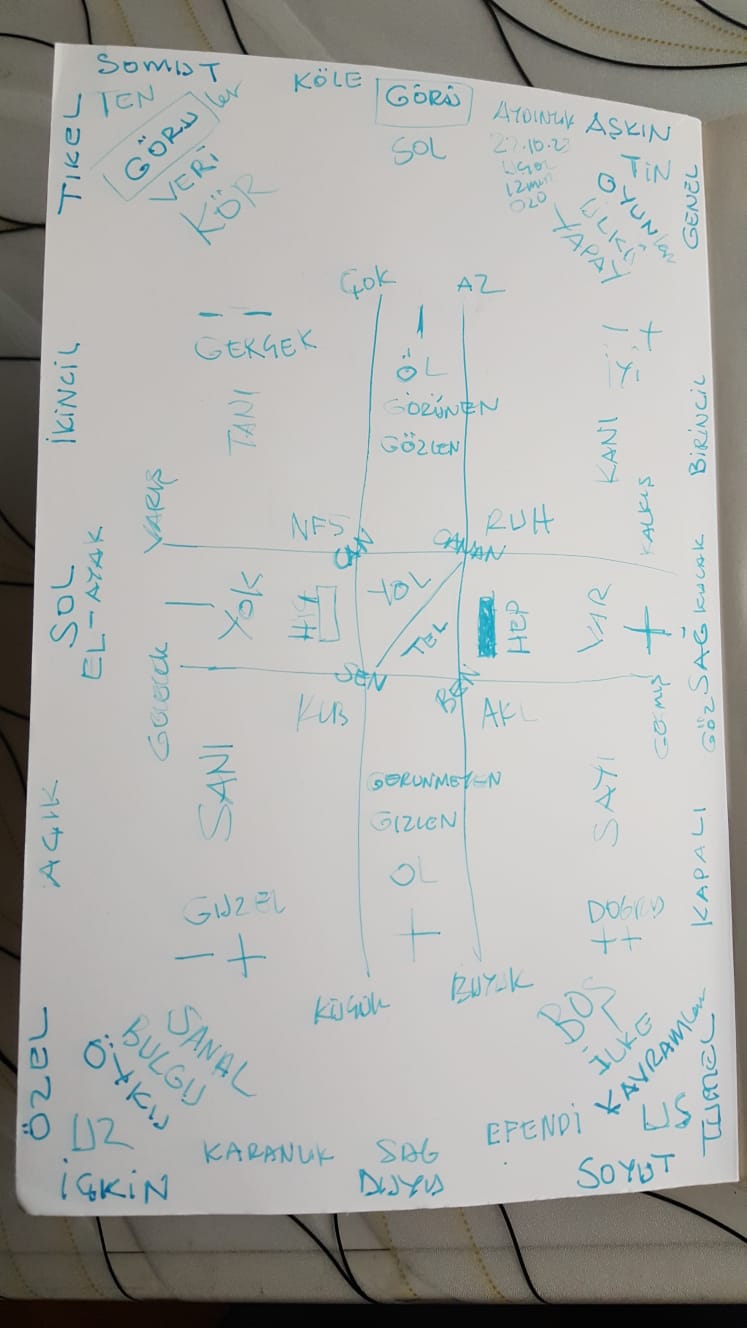 SOMUT
KÖLE
GÖRÜ
TEN
GÖRÜler
VERİ
KÖR
TİKEL
SOL
AYDINLIK
AŞKIN
TİN
OYUNlar
ÜLKÜ
YAPAY
GENEL
27.10.23
İzmir
020
ÇOK
AZ
İKİNCİL
— —
GERÇEK
TANI
ÖL
GÖRÜNEN
GÖZLEN
— +
İYİ
KANI
BİRİNCİL
VARIŞ
NFS
RUH
KALKIŞ
CAN
CANAN
SOL
EL-AYAK
YOK
HİÇ
YOL
TEL
HEP
VAR
+
SAĞ
GÖZ KULAK
GELECEK
SEN
BEN
GEÇMİŞ
KLB
AKL
AÇIK
SANI
GÖRÜNMEYEN
GİZLEN
OL
+
SAYI
KAPALI
GÜZEL
— +
DOĞRU
+ +
KÜÇÜK
BÜYÜK
ÖZEL
SANAL
BULGU
ÖYKÜ
UZ
İÇKİN
KARANLIK
SAĞ
DUYU
EFENDİ
BOŞ
İLKE
KAVRAMlar
US
SOYUT
TÜMEL